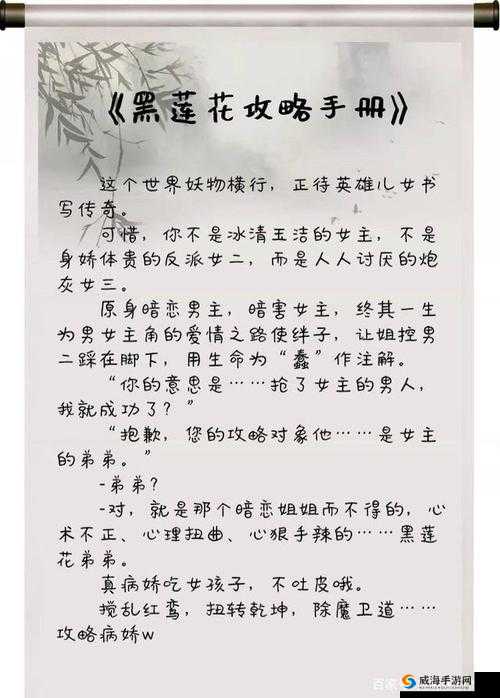 《黑莲花攻略手册》
这个世界妖物横行，正待英雄儿女书
写传奇。
可惜，你不是冰清玉洁的女主，不是
身娇体贵的反派女二，而是人人讨厌的炮
灰女三。
原身暗恋男主，暗害女主，终其一生
为男女主角的爱情之路使绊子，让姐控男
二踩在脚下，用生命为“蠢”作注解。
“你的意思是……抢了女主的男人，
我就成功了？”
“抱歉，您的攻略对象他……是女主
的弟弟。”
-弟弟？
-对，就是那个暗恋姐姐而不得的，心
术不正、心理扭曲、心狠手辣的……黑莲
花弟弟。
真病娇吃女孩子，不吐皮哦。
搅乱红鸾，扭转乾坤，除魔卫道……
攻略病娇w
百家
威海手游网